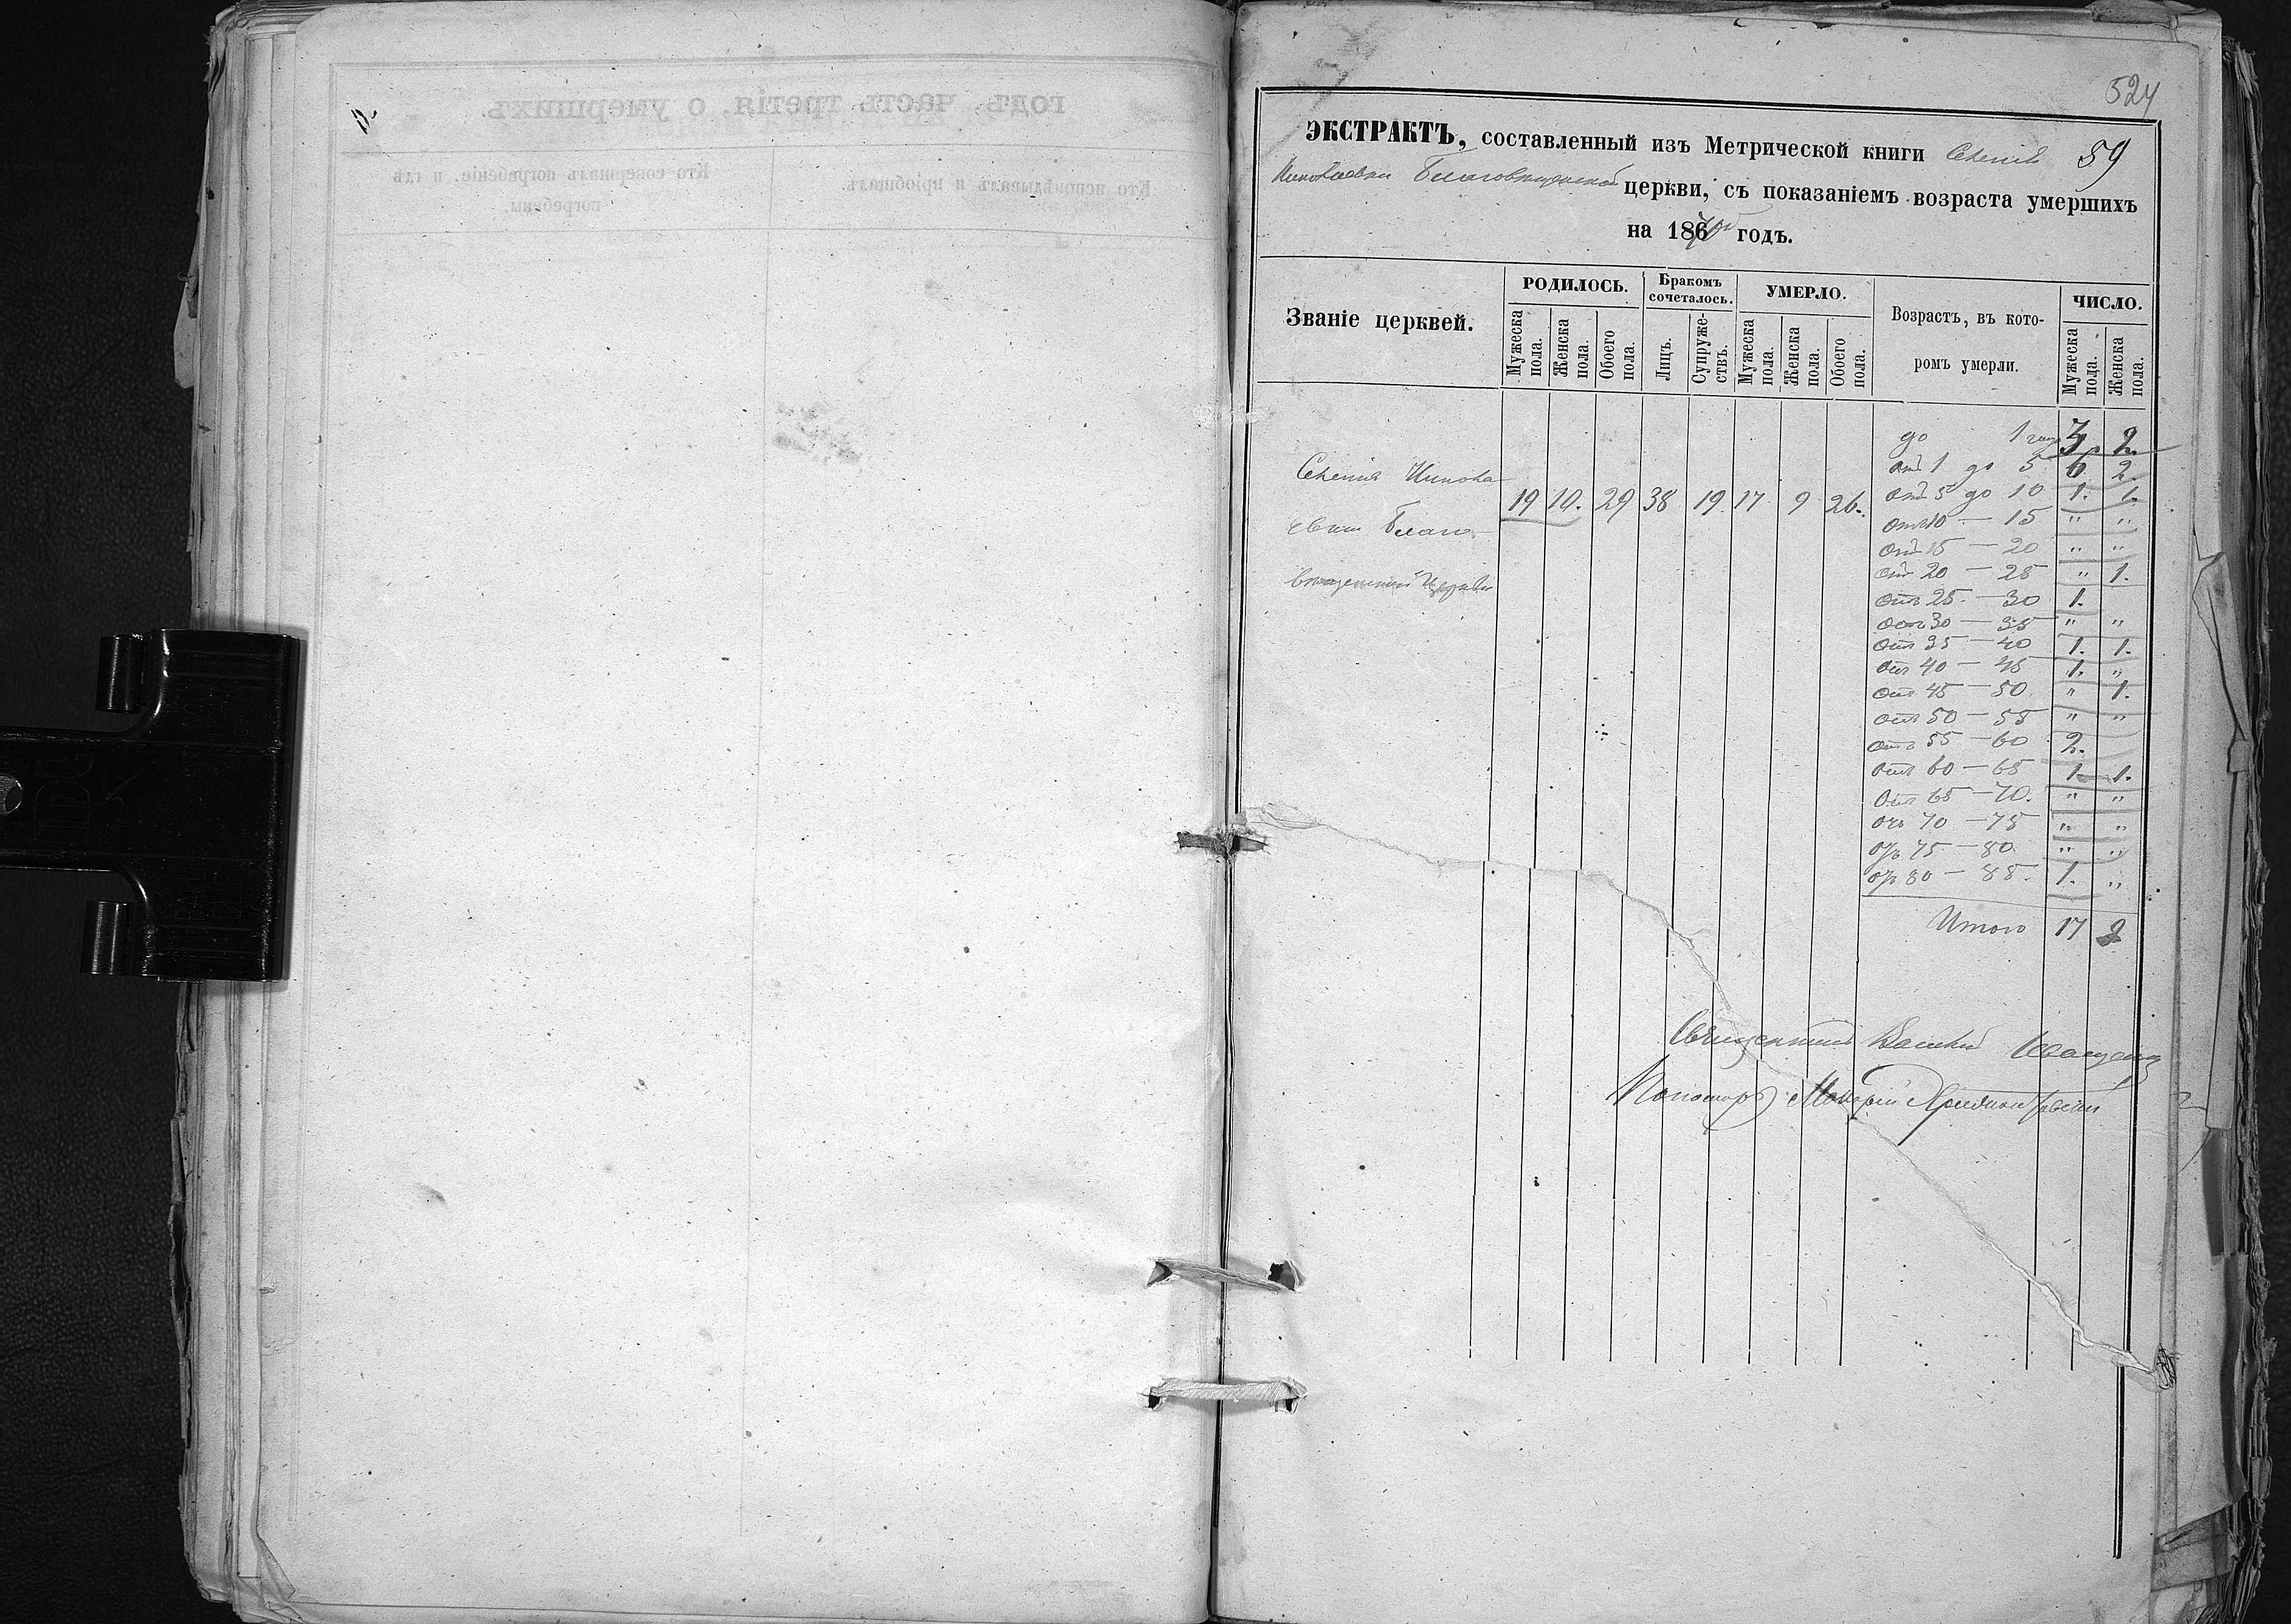 524
59
ЭКСТРАКТЪ, составленный изъ Метрической книги Селенія
Благовѣщенской церкви, съ показаніемъ возраста умершихъ
на 1870й годъ.
Званіе церквей.
РОДИЛОСЬ.
Бракомъ сочеталось.
УМЕРЛО.
Возрастъ, въ кото-
ромъ умерли.
ЧИСЛО.
Мужеска пола.
Женска пола.
Обоего пола.
Лицъ.
Супруже-
ствъ.
Мужеска пола.
Женска пола.
Обоего пола.
Мужеска пола.
Женска пола.
Селенія
Благо-
вѣщенской Церкви
19 10. 29 38 19. 17. 9 26.
до 1 года 3. 2.
отъ 1 до 5 6. 2.
отъ 5 до 10 1. 1.
отъ 10 — 15 " "
отъ 15 — 20 " "
отъ 20 — 25 " 1.
отъ 25 — 30 1.
отъ 30 — 35 " "
отъ 35 — 40 1. 1.
отъ 40 — 45 1. "
отъ 45 — 50 " 1.
отъ 50 — 55 " "
отъ 55 — 60 2.
отъ 60 — 65 1. 1.
отъ 65 — 70. " "
отъ 70 — 75 " "
отъ 75 — 80 " "
отъ 80 — 85. 1. "
Итого 17 9
Священникъ
Пономарь
годъ, часть третія, о умершихъ.
Кто исповѣдывалъ и пріобщалъ.
Кто совершалъ погребеніе, и гдѣ
погребены.